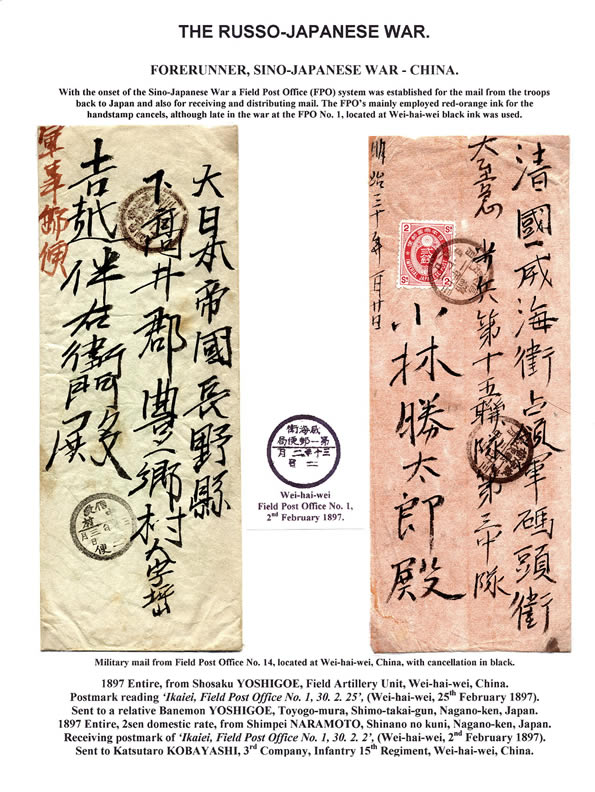 THE RUSSO-JAPANESE WAR.
FORERUNNER, SINO-JAPANESE WAR - CHINA.
With the onset of the Sino-Japanese War a Field Post Office (FPO) system was established for the mail from the troops
back to Japan and also for receiving and distributing mail. The FPO's mainly employed red-orange ink for the
handstamp cancels, although late in the war at the FPO No. 1, located at Wei-hai-wei black ink was used.
大日本帝國長野縣
下高井郡豊郷村大字
吉越伴右衛門殿
軍事郵便
清國威海衛占領軍碼頭街
大至急 歩兵第十五聯隊第三中隊
小林勝太郎殿
明治三十年一月廿日
2 Sn 2 Sn
威海衛
第一郵便局
三十年二月
二日
Wei-hai-wei
Field Post Office No. 1,
2nd February 1897.
Military mail from Field Post Office No. 14, located at Wei-hai-wei, China, with cancellation in black.
1897 Entire, from Shosaku YOSHIGOE, Field Artillery Unit, Wei-hai-wei, China.
Postmark reading 'Ikaiei, Field Post Office No. 1, 30. 2. 25', (Wei-hai-wei, 25th February 1897).
Sent to a relative Banemon YOSHIGOE, Toyogo-mura, Shimo-takai-gun, Nagano-ken, Japan.
1897 Entire, 2sen domestic rate, from Shimpei NARAMOTO, Shinano no kuni, Nagano-ken, Japan.
Receiving postmark of 'Ikaiei, Field Post Office No. 1, 30. 2. 2', (Wei-hai-wei, 2nd February 1897).
Sent to Katsutaro KOBAYASHI, 3rd Company, Infantry 15th Regiment, Wei-hai-wei, China.